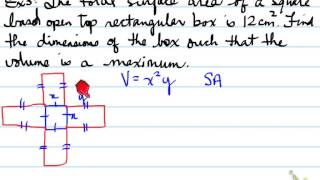 Ex3: The total surface area of a square
based open top rectangular box is 12cm². Find
the dimensions of the box such that the
volume is a maximum.
V = x²y SA
x y
x